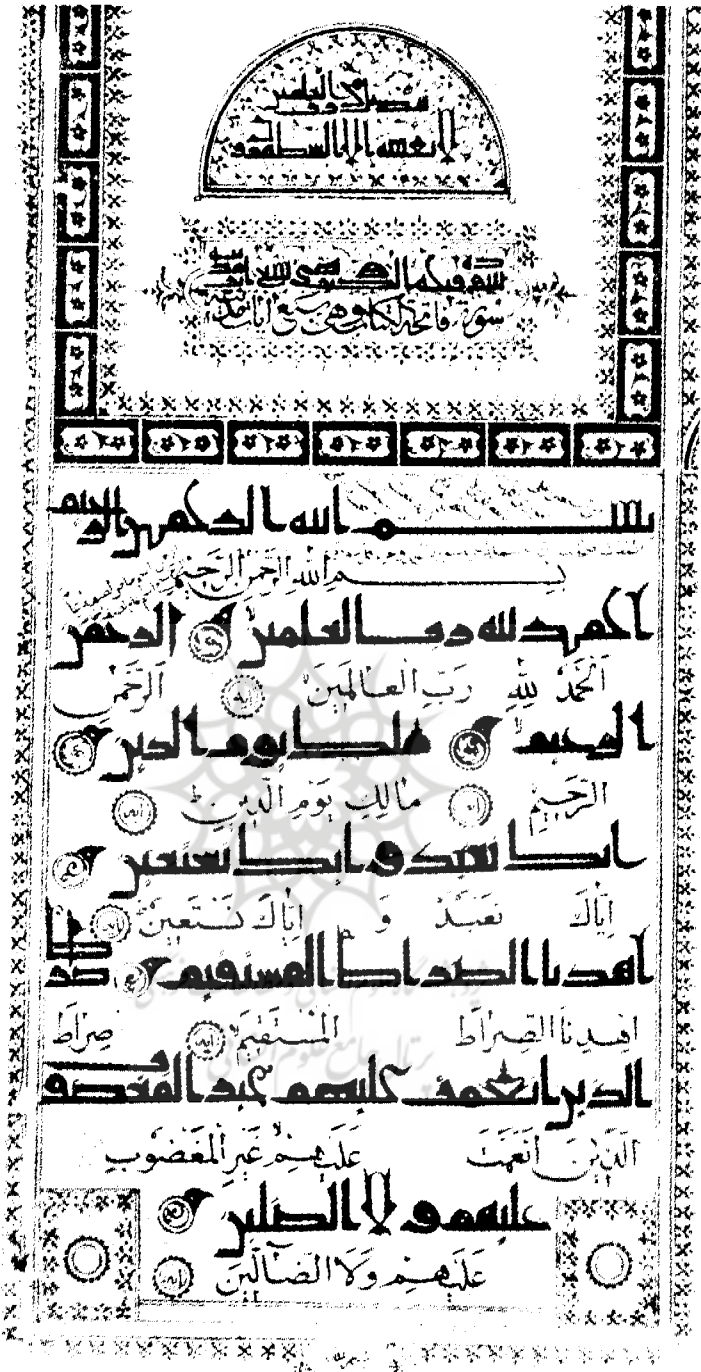 من رب العالمين
لا يمسه إلا المطهرون
سورة فاتحة الكتاب وهي سبع آيات
سورة فاتحة الكتاب وهي سبع آيات
بسم الله الرحمن الرحيم
بِسْمِ اللهِ الرَّحْمٰنِ الرَّحِيمِ
الحمد لله رب العلمين الرحمن
اَلْحَمْدُ لِلّٰهِ رَبِّ الْعَالَمِينَ الرَّحْمٰنِ
الرحيم ملك يوم الدين
الرَّحِيمِ مَالِكِ يَوْمِ الدِّينِ
اياك نعبد و اياك نستعين
اِيَّاكَ نَعْبُدُ وَ اِيَّاكَ نَسْتَعِينُ
اهدنا الصراط المستقيم صراط
اهْدِنَا الصِّرَاطَ الْمُسْتَقِيمَ صِرَاطَ
الذين انعمت عليهم غير المغضو
الَّذِينَ اَنْعَمْتَ عَلَيْهِمْ غَيْرِ الْمَغْضُوبِ
عليهم و لا الضلين
عَلَيْهِمْ وَلَا الضَّالِّينَ
پرتال جامع علوم انسانی